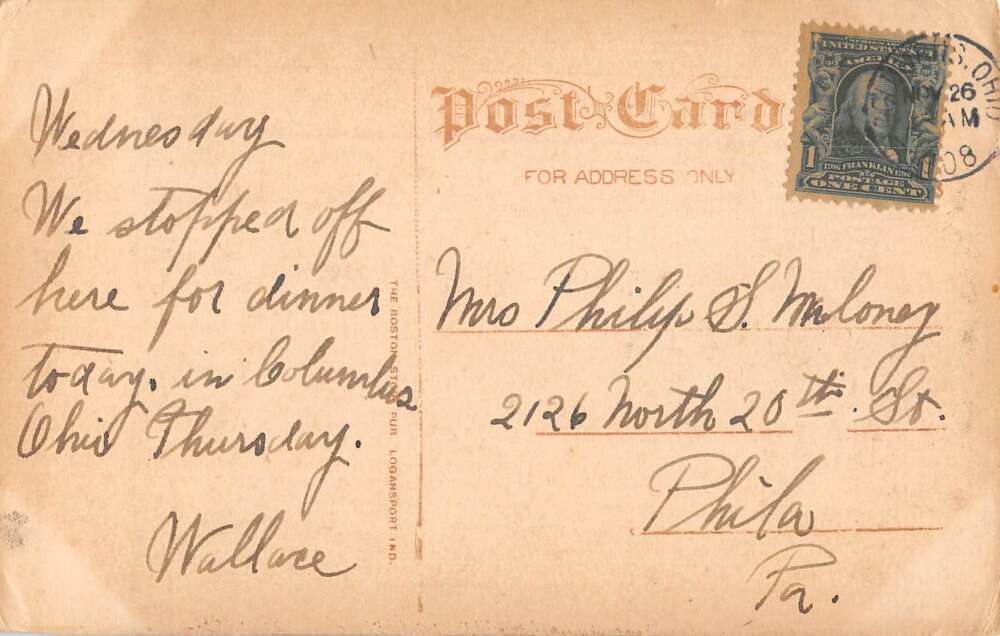 Wednesday
We stopped off
here for dinner
today. in Columbus
Ohio Thursday.
Wallace
THE BOSTON STORE PUR LOGANSPORT IND.
Post Card
FOR ADDRESS ONLY
UNITED STATES OF
AMERICA
1
FRANKLIN
POSTAGE
ONE CENT
OHIO
NOV 26
AM
1908
Mrs Philip S. Maloney
2126 North 20th. St.
Phila
Pa.